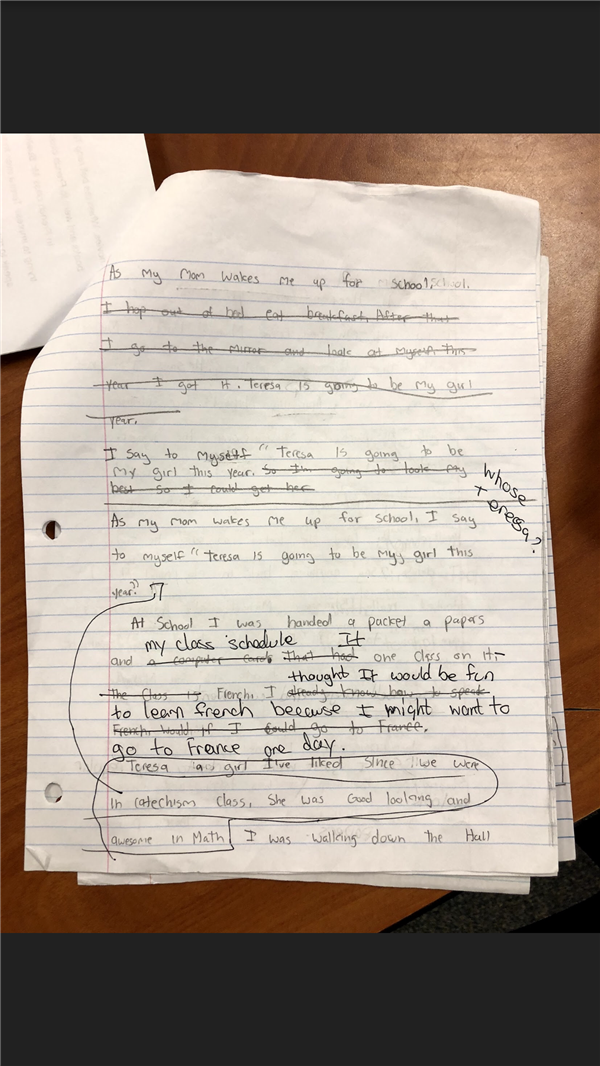 As my mom wakes me up for school. school.
I hop out of bed eat breakfast. After that
I go to the mirror and look at myself. This
year I got it. Teresa is going to be my girl
year.
I say to myself "Teresa is going to be
my girl this year. So I'm going to look my
best so I could get her
whose
Teresa?
As my mom wakes me up for school, I say
to myself "Teresa is going to be my girl this
year."
At School I was handed a packet a papers
my class schedule It
and a computer card that had one class on it,
thought It would be fun
The class is French, I already know how to speak
to learn french because I might want to
French, would if I could go to France.
go to France one day.
Teresa a girl I've liked since we were
in catechism class, She was Good looking and
awesome in Math I was walking down the Hall